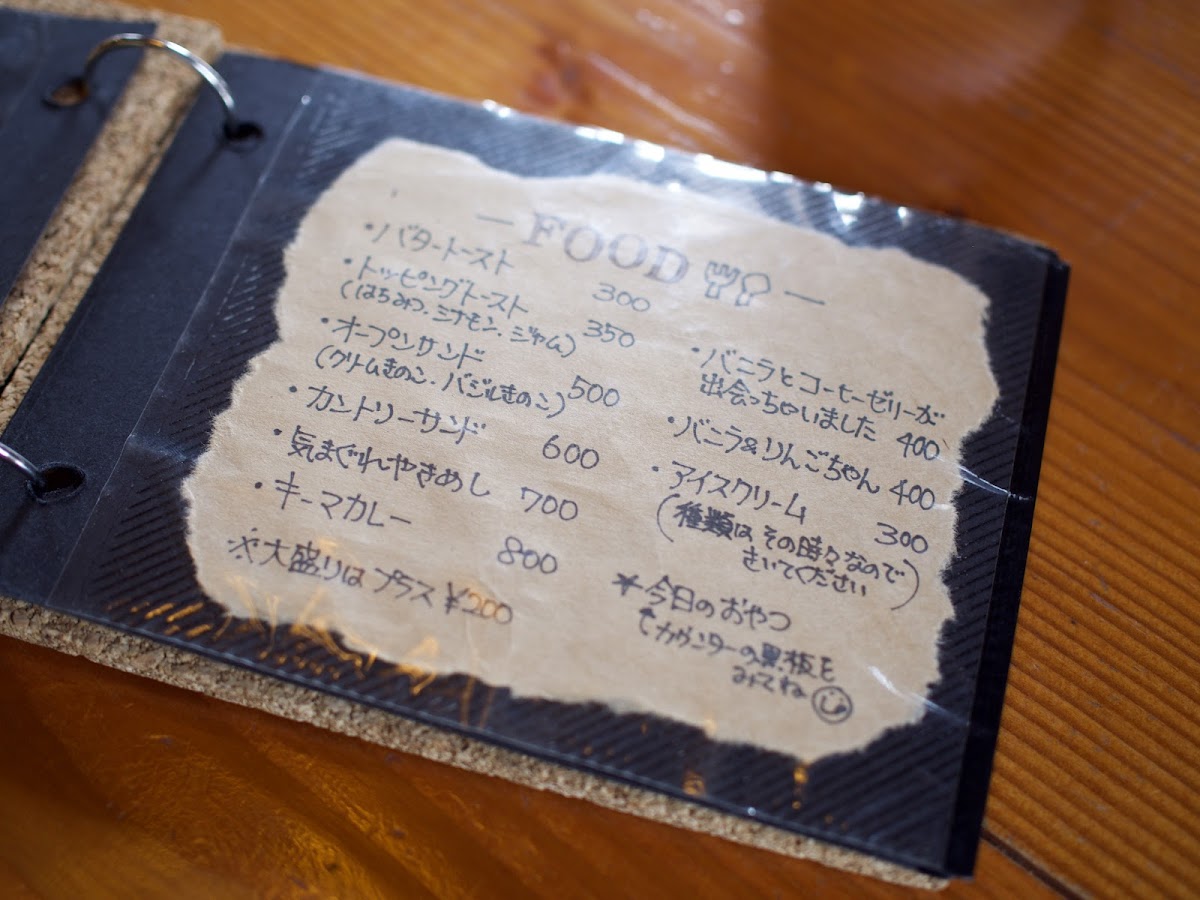 — FOOD —
・バタートースト 300
・トッピングトースト 350
(はちみつ・シナモン・ジャム)
・オープンサンド 500
(クリームきのこ・バジルきのこ)
・カントリーサンド 600
・気まぐれやきめし 700
・キーマカレー 800
※大盛りは プラス ¥200
・バニラとコーヒーゼリーが
出会っちゃいました 400
・バニラ&りんごちゃん 400
・アイスクリーム 300
(種類は その時々なので
きいてください)
*今日のおやつ
カウンターの黒板を
みてね